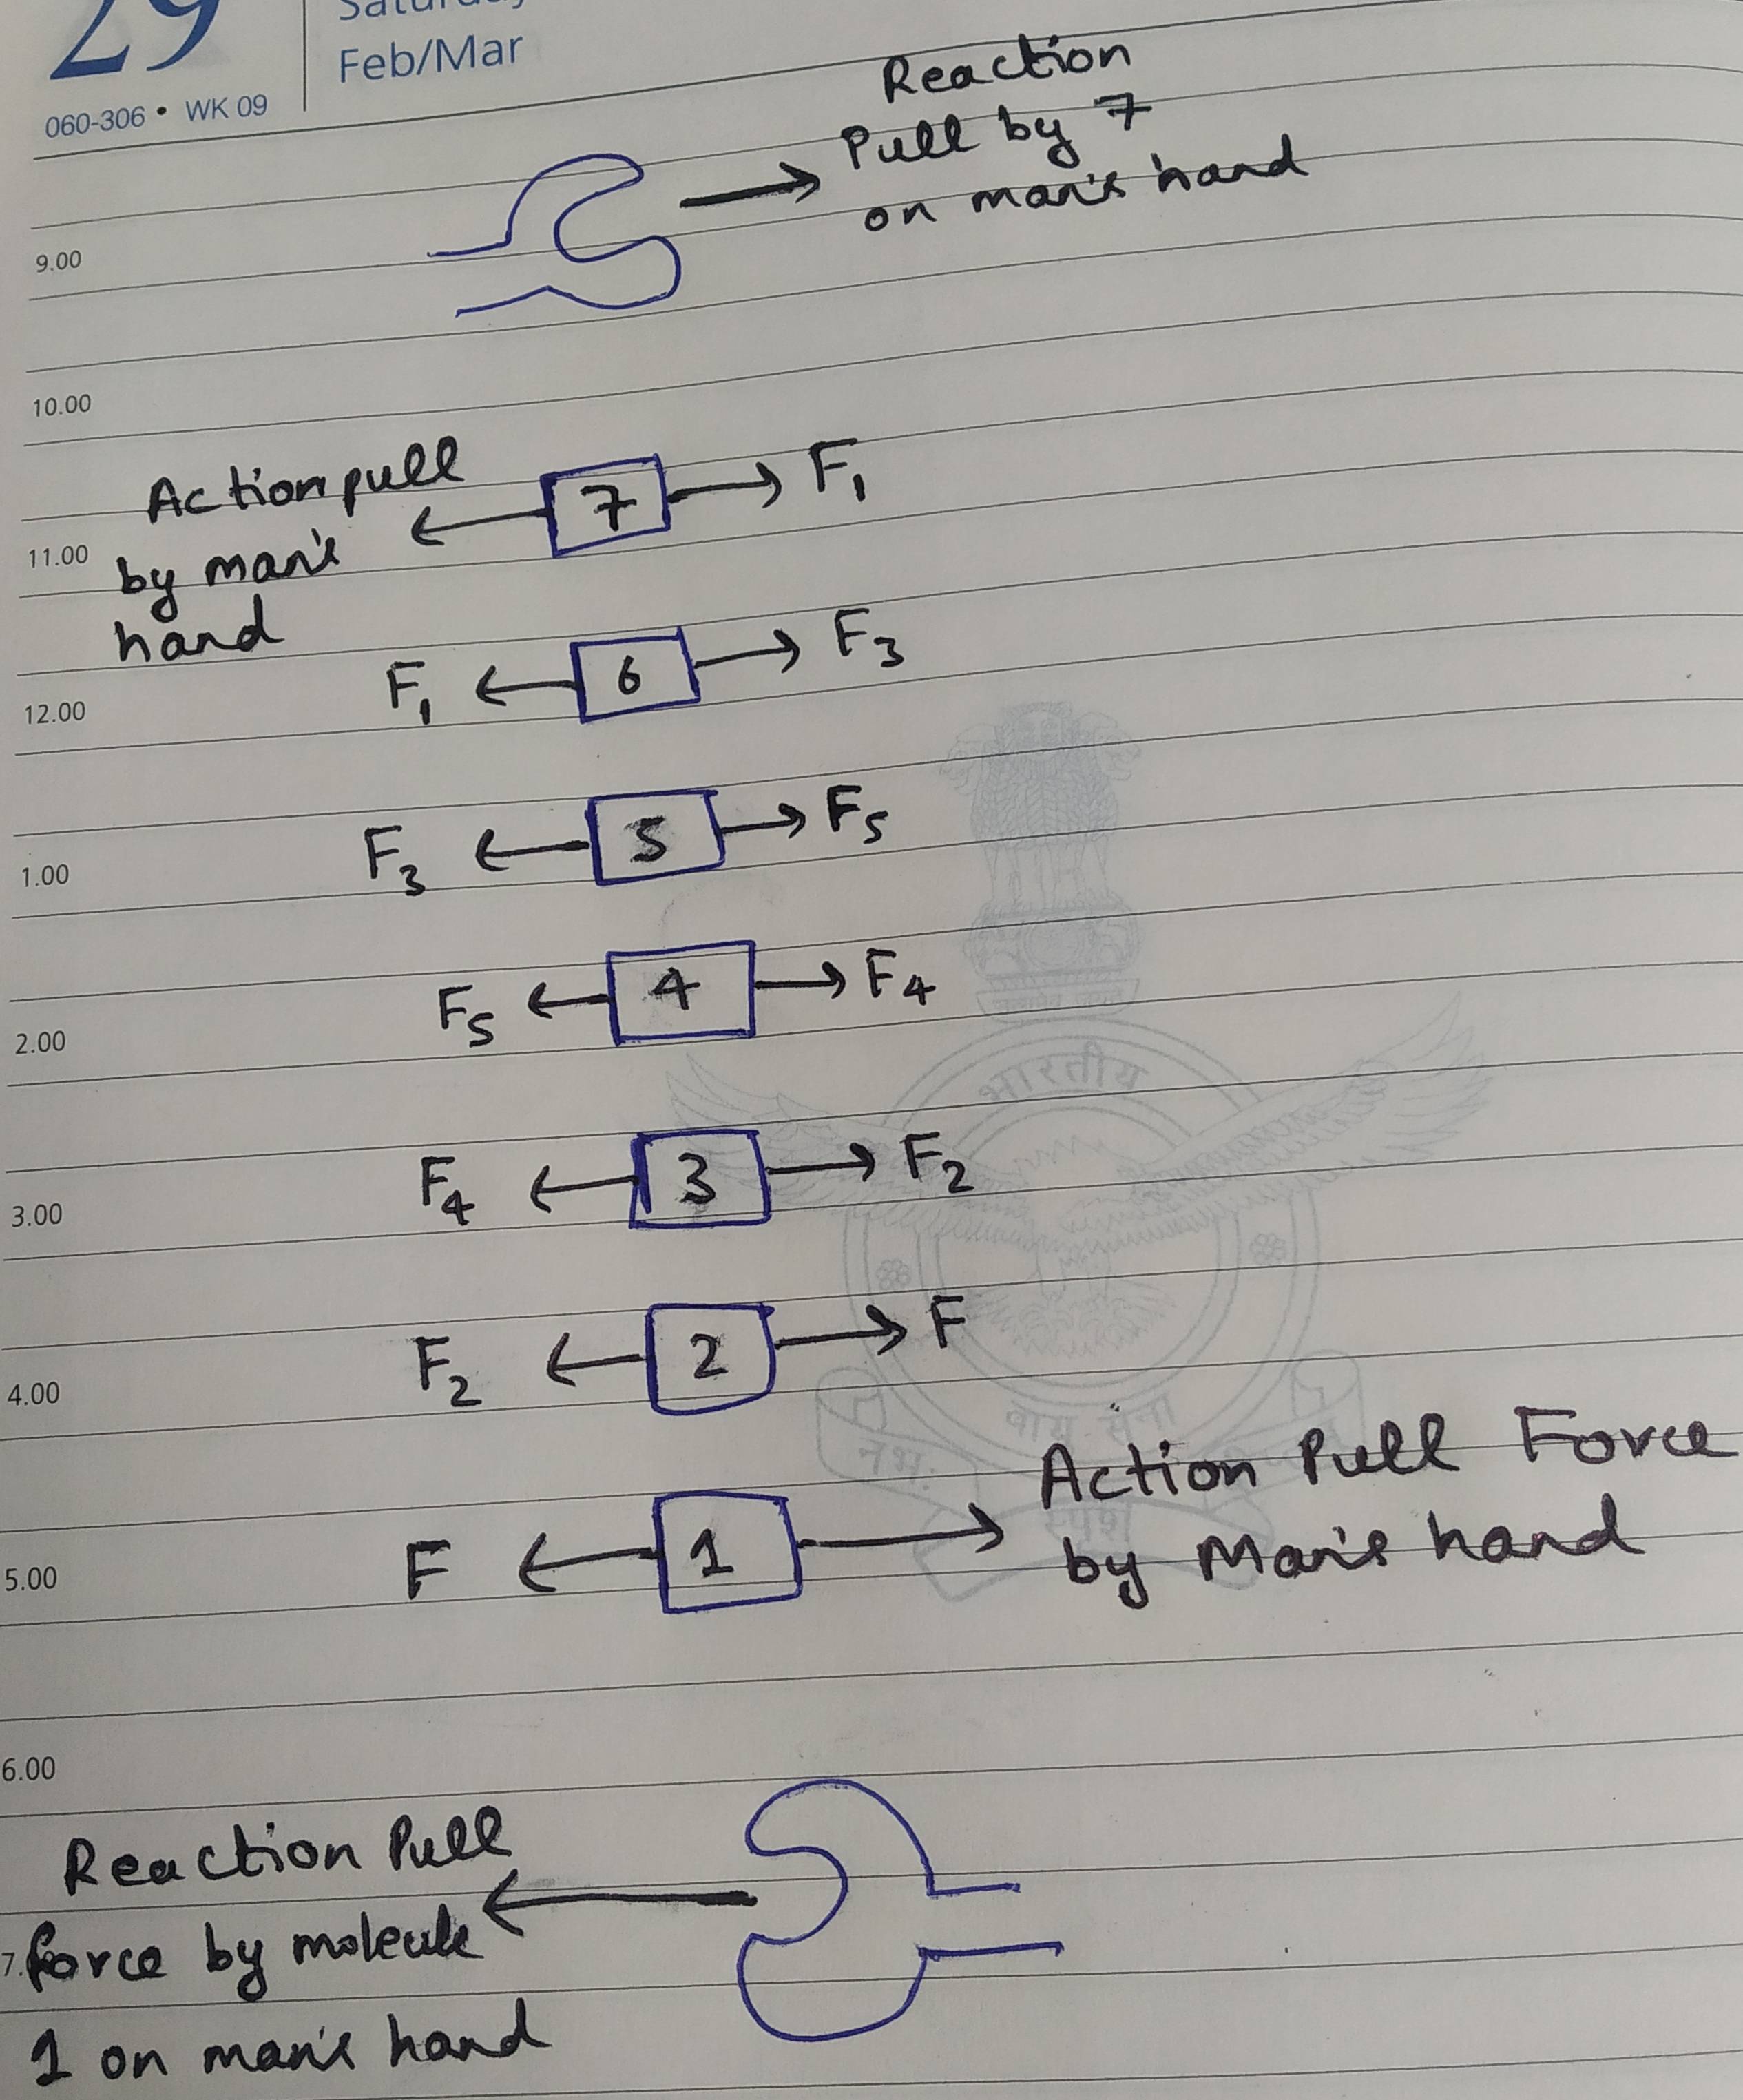 29
Saturday
Feb/Mar
060-306 • WK 09
Reaction
Pull by 7
on man's hand
9.00
10.00
Action pull
by man's
hand
7
F₁
11.00
F₁
6
F₃
12.00
F₃
5
F₅
1.00
F₅
4
F₄
2.00
भारतीय
F₄
3
F₂
3.00
F₂
2
F
4.00
वायु सेना
नभः
स्पृशं
Action Pull Force
by Man's hand
F
1
5.00
6.00
Reaction Pull
force by molecule
7.
1 on man's hand